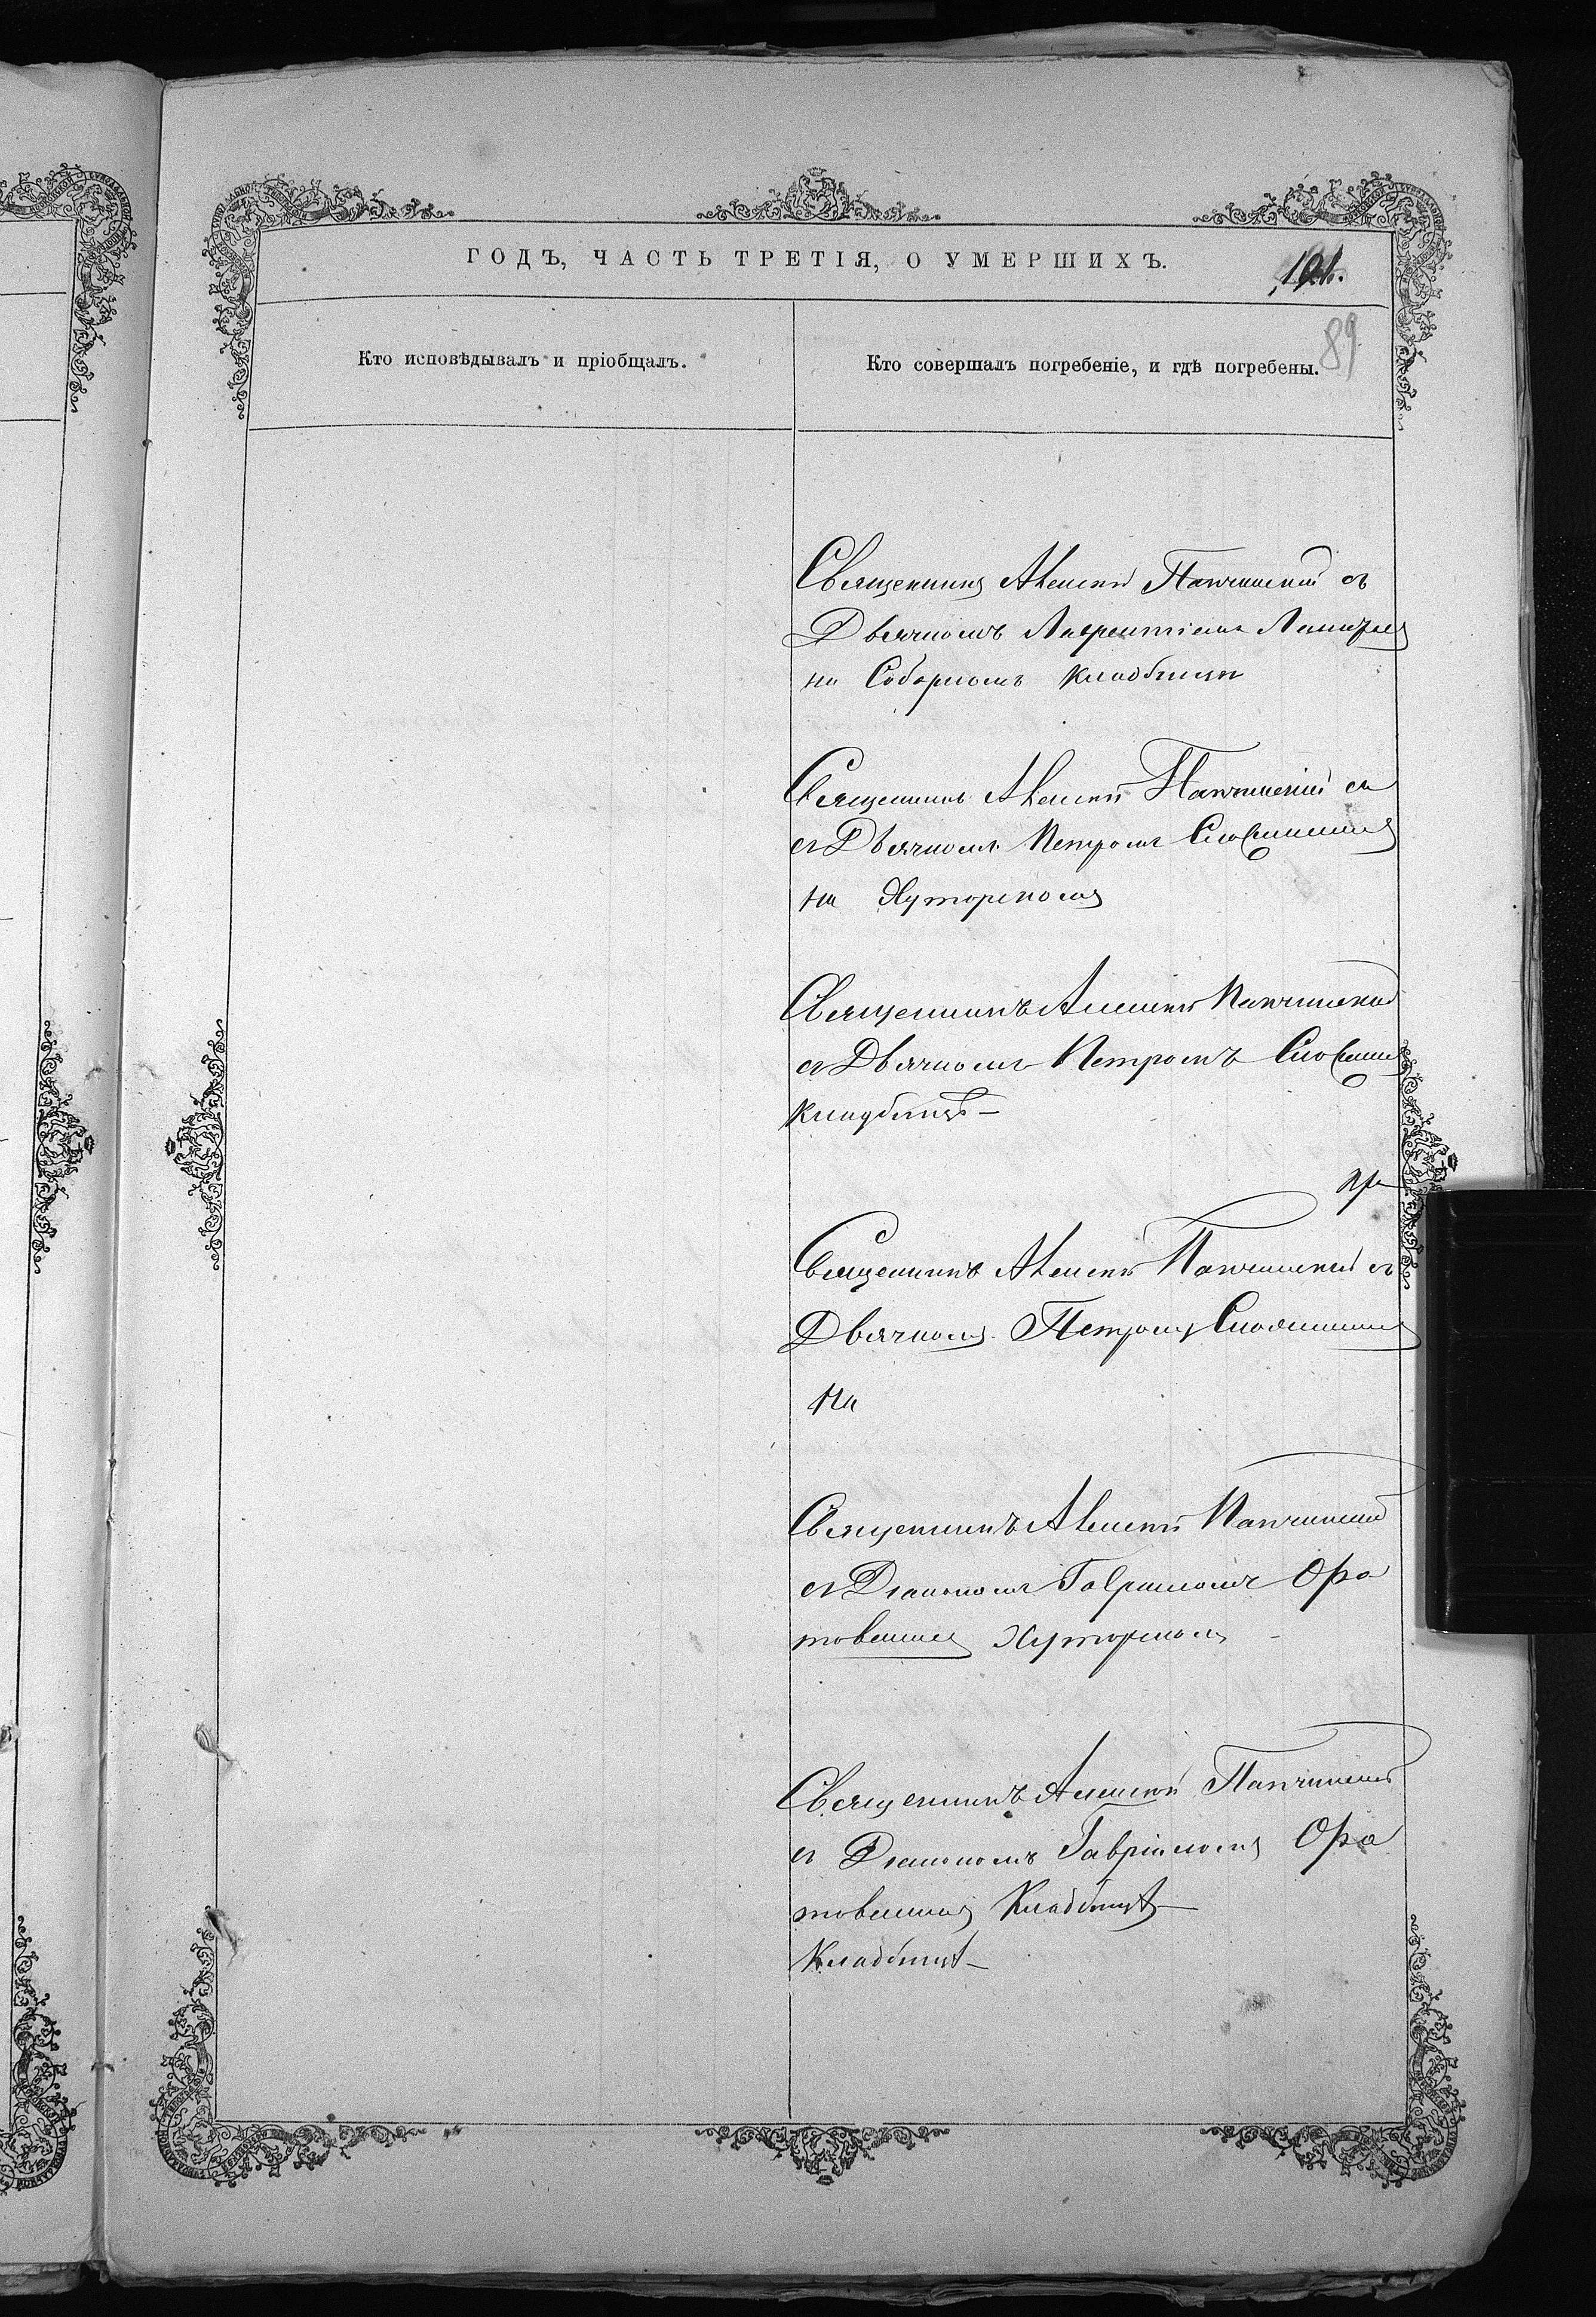 ГОДЪ, ЧАСТЬ ТРЕТІЯ, О УМЕРШИХЪ.
101.
89
Кто исповѣдывалъ и пріобщалъ.
Кто совершалъ погребеніе, и гдѣ погребены.
Священникъ Алексѣй Панчинскій съ
Дьячкомъ Лаврентіемъ
на Соборномъ кладбищѣ
Священникъ Алексѣй Панчинскій съ
съ Дьячкомъ Петромъ
на Хуторскомъ
Священникъ Алексѣй Панчинскій
съ Дьячкомъ Петромъ
кладбищѣ
Священникъ Алексѣй Панчинскій съ
Дьячкомъ Петромъ
на
Священникъ Алексѣй Панчинскій
съ Діакономъ Гавріиломъ Ора
товскимъ Хуторскомъ
Священникъ Алексѣй Панчинскій
съ Діакономъ Гавріиломъ Ора
товскимъ Кладбищѣ
Кладбищѣ